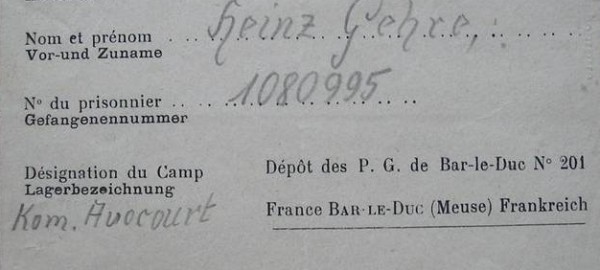 Nom et prénom . . . Heinz Gehre,
Vor-und Zuname
N° du prisonnier . . . 1080995
Gefangenennummer
Désignation du Camp
Lagerbezeichnung
Kom. Avocourt
Dépôt des P. G. de Bar-le-Duc N° 201
France BAR-LE-DUC (Meuse) Frankreich